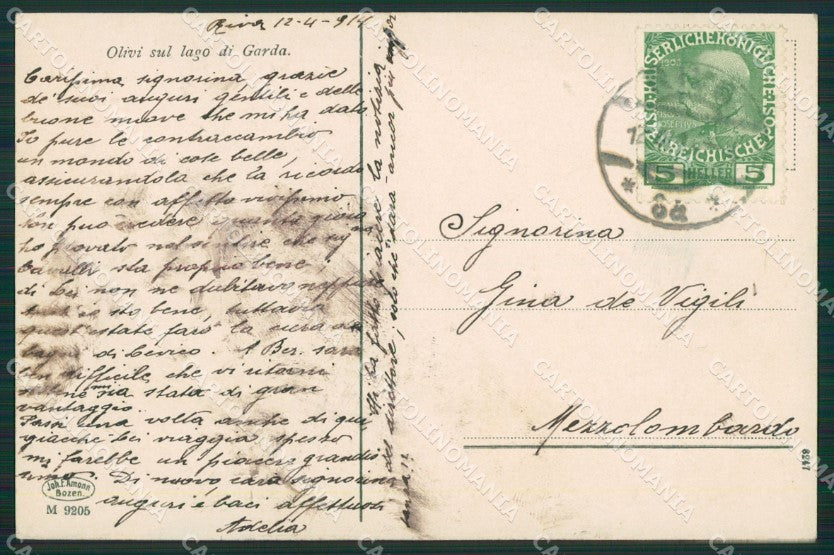 Riva 12-4-914
Olivi sul lago di Garda.
Carissima signorina grazie
de' suoi auguri gentili e delle
buone nuove che mi ha dato
Io pure le contraccambio
un mondo di cose belle,
assicurandola che la ricordo
sempre con affetto vivissimo
non può credere quanta gioia
ho provato nel sentire che
Cavalli sta proprio bene,
di Lei non ne dubitavo neppure
sto bene, tuttavia
quest'estate farò la cura
di Levico. A
difficile che vi ritorni
sia stata di gran
vantaggio.
Passi una volta anche di qui
giacché Lei viaggia spesso
mi farebbe un piacere grandis
simo. Di nuovo cara signorina
auguri e baci affettuosi
Adelia
la notizia
del direttore, che sarà ancor più
Joh. F. Amonn
Bozen.
M 9205
KAISERLICHE KÖNIGLICHE
ÖSTERREICHISCHE POST
1908
5 HELLER 5
Signorina
Gina de Vigili
Mezzolombardo
CARTOLINOMANIA